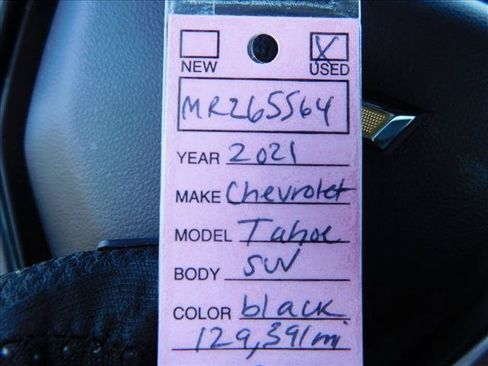 X
NEW USED
MR265564
YEAR 2021
MAKE Chevrolet
MODEL Tahoe
BODY SUV
COLOR black
129,391mi